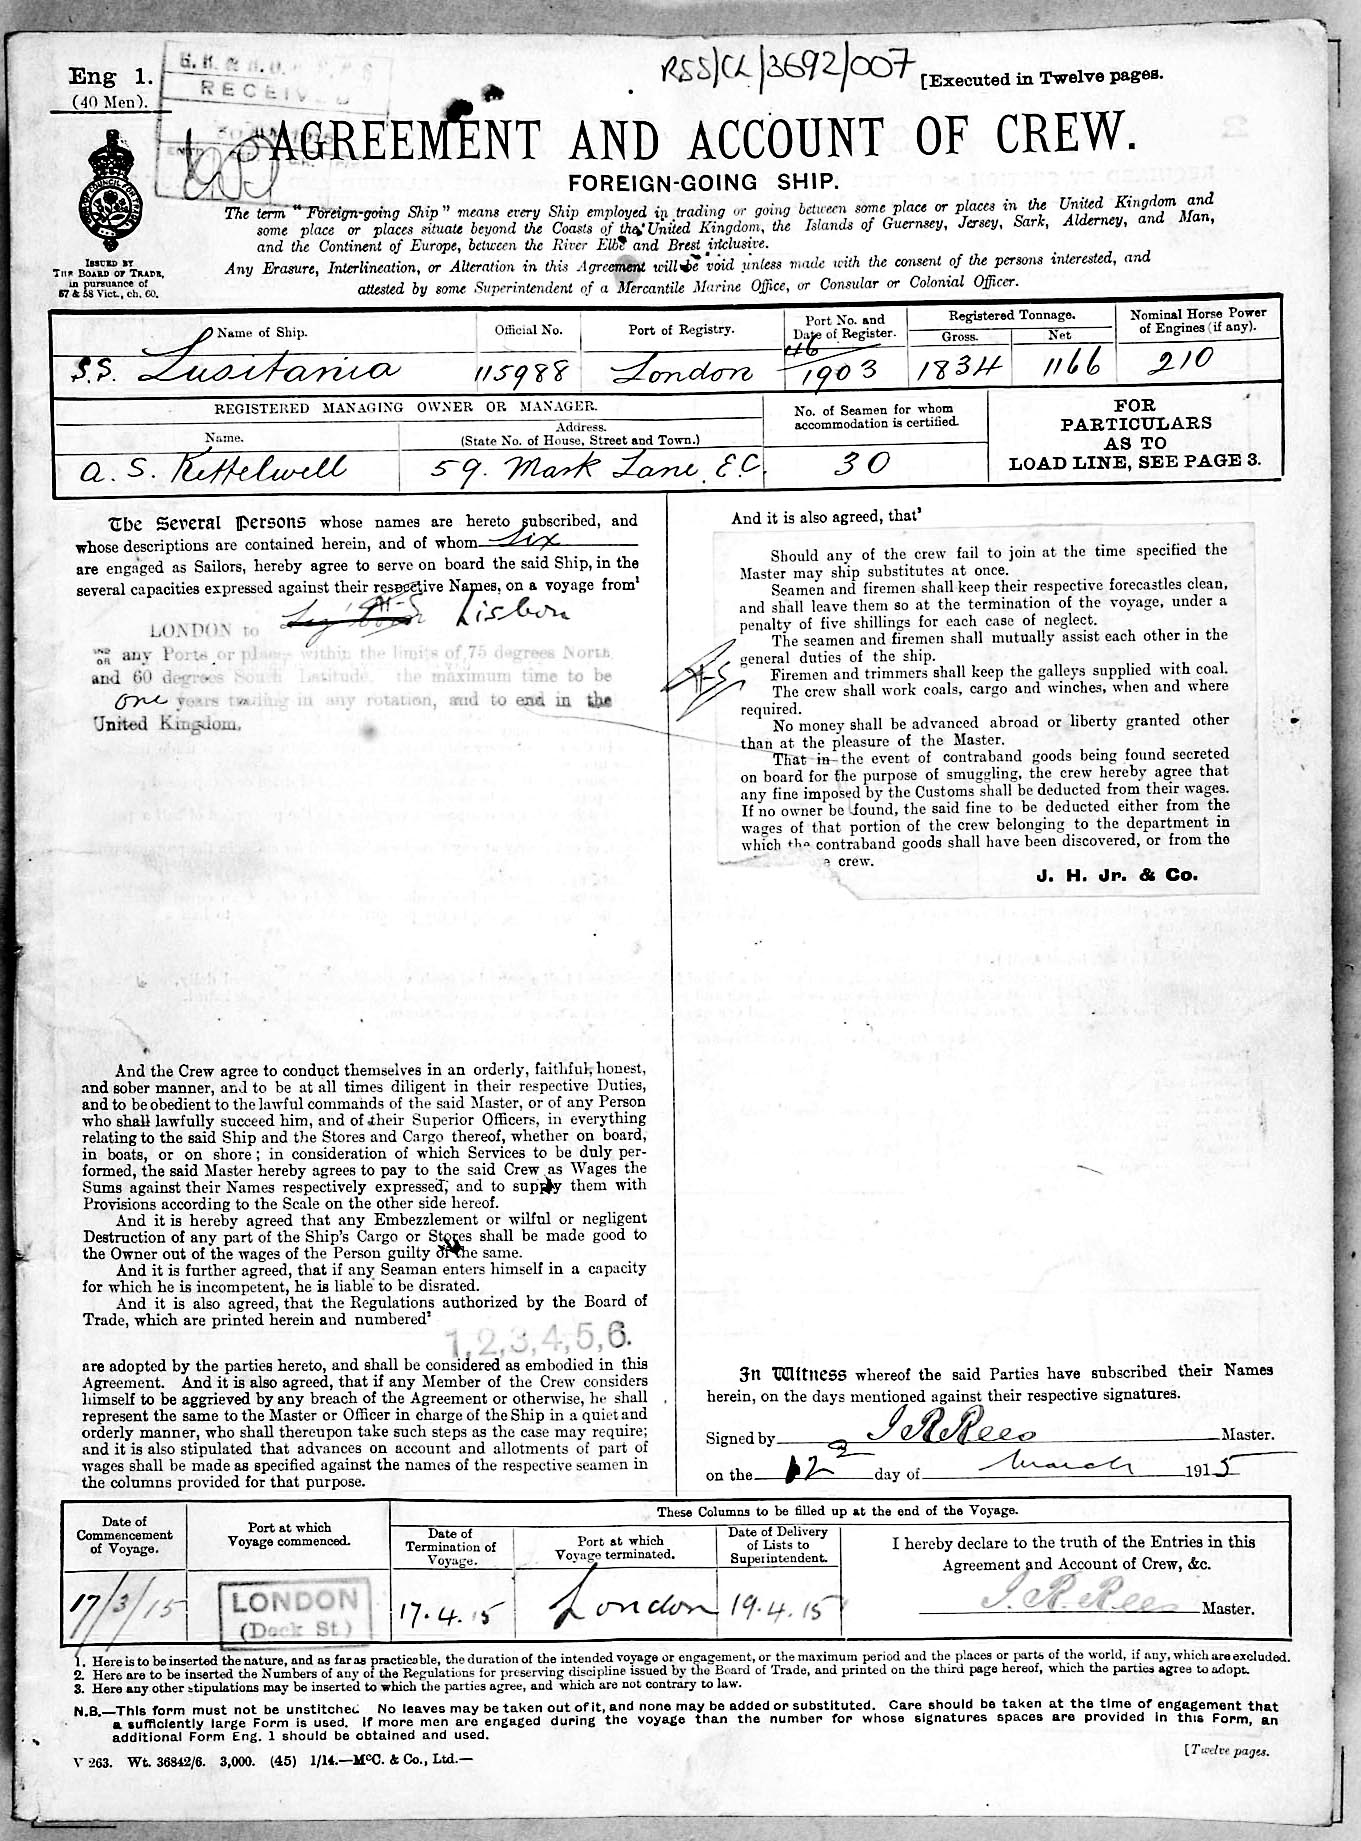 Eng 1.
(40 Men).
RECEIVED
RSS/CL/3692/007
[Executed in Twelve pages.
AGREEMENT AND ACCOUNT OF CREW.
FOREIGN-GOING SHIP.
ISSUED BY
THE BOARD OF TRADE,
in pursuance of
57 & 58 Vict., ch. 60.
The term "Foreign-going Ship" means every Ship employed in trading or going between some place or places in the United Kingdom and
some place or places situate beyond the Coasts of the United Kingdom, the Islands of Guernsey, Jersey, Sark, Alderney, and Man,
and the Continent of Europe, between the River Elbe and Brest inclusive.
Any Erasure, Interlineation, or Alteration in this Agreement will be void unless made with the consent of the persons interested, and
attested by some Superintendent of a Mercantile Marine Office, or Consular or Colonial Officer.
Name of Ship.
Official No.
Port of Registry.
Port No. and
Date of Register.
Registered Tonnage.
Gross.
Net
Nominal Horse Power
of Engines (if any).
S.S. Lusitania
115988
London
46
1903
1834
1166
210
REGISTERED MANAGING OWNER OR MANAGER.
Name.
Address.
(State No. of House, Street and Town.)
No. of Seamen for whom
accommodation is certified.
FOR
PARTICULARS
AS TO
LOAD LINE, SEE PAGE 3.
A. S. Kettelwell
59. Mark Lane. E.C.
30
The Several Persons whose names are hereto subscribed, and
whose descriptions are contained herein, and of whom Six
are engaged as Sailors, hereby agree to serve on board the said Ship, in the
several capacities expressed against their respective Names, on a voyage from¹
LONDON to Lisbon
AND
OR any Ports or places within the limits of 75 degrees North
and 60 degrees South Latitude, the maximum time to be
one years trading in any rotation, and to end in the
United Kingdom.
And the Crew agree to conduct themselves in an orderly, faithful, honest,
and sober manner, and to be at all times diligent in their respective Duties,
and to be obedient to the lawful commands of the said Master, or of any Person
who shall lawfully succeed him, and of their Superior Officers, in everything
relating to the said Ship and the Stores and Cargo thereof, whether on board,
in boats, or on shore; in consideration of which Services to be duly per-
formed, the said Master hereby agrees to pay to the said Crew as Wages the
Sums against their Names respectively expressed, and to supply them with
Provisions according to the Scale on the other side hereof.
And it is hereby agreed that any Embezzlement or wilful or negligent
Destruction of any part of the Ship's Cargo or Stores shall be made good to
the Owner out of the wages of the Person guilty of the same.
And it is further agreed, that if any Seaman enters himself in a capacity
for which he is incompetent, he is liable to be disrated.
And it is also agreed, that the Regulations authorized by the Board of
Trade, which are printed herein and numbered²
1,2,3,4,5,6.
are adopted by the parties hereto, and shall be considered as embodied in this
Agreement. And it is also agreed, that if any Member of the Crew considers
himself to be aggrieved by any breach of the Agreement or otherwise, he shall
represent the same to the Master or Officer in charge of the Ship in a quiet and
orderly manner, who shall thereupon take such steps as the case may require;
and it is also stipulated that advances on account and allotments of part of
wages shall be made as specified against the names of the respective seamen in
the columns provided for that purpose.
And it is also agreed, that³
Should any of the crew fail to join at the time specified the
Master may ship substitutes at once.
Seamen and firemen shall keep their respective forecastles clean,
and shall leave them so at the termination of the voyage, under a
penalty of five shillings for each case of neglect.
The seamen and firemen shall mutually assist each other in the
general duties of the ship.
Firemen and trimmers shall keep the galleys supplied with coal.
The crew shall work coals, cargo and winches, when and where
required.
No money shall be advanced abroad or liberty granted other
than at the pleasure of the Master.
That in the event of contraband goods being found secreted
on board for the purpose of smuggling, the crew hereby agree that
any fine imposed by the Customs shall be deducted from their wages.
If no owner be found, the said fine to be deducted either from the
wages of that portion of the crew belonging to the department in
which the contraband goods shall have been discovered, or from the
crew.
J. H. Jr. & Co.
In Witness whereof the said Parties have subscribed their Names
herein, on the days mentioned against their respective signatures.
Signed by J R Rees Master.
on the 12 day of March 1915
Date of
Commencement
of Voyage.
Port at which
Voyage commenced.
These Columns to be filled up at the end of the Voyage.
Date of
Termination of
Voyage.
Port at which
Voyage terminated.
Date of Delivery
of Lists to
Superintendent.
I hereby declare to the truth of the Entries in this
Agreement and Account of Crew, &c.
17/3/15
LONDON
(Dock St.)
17.4.15
London
19.4.15
J. R. Rees Master.
1. Here is to be inserted the nature, and as far as practicable, the duration of the intended voyage or engagement, or the maximum period and the places or parts of the world, if any, which are excluded.
2. Here are to be inserted the Numbers of any of the Regulations for preserving discipline issued by the Board of Trade, and printed on the third page hereof, which the parties agree to adopt.
3. Here any other stipulations may be inserted to which the parties agree, and which are not contrary to law.
N.B.—This form must not be unstitched. No leaves may be taken out of it, and none may be added or substituted. Care should be taken at the time of engagement that
a sufficiently large Form is used. If more men are engaged during the voyage than the number for whose signatures spaces are provided in this Form, an
additional Form Eng. 1 should be obtained and used.
V 263. Wt. 36842/6. 3,000. (45) 1/14.—McC. & Co., Ltd.—
[Twelve pages.